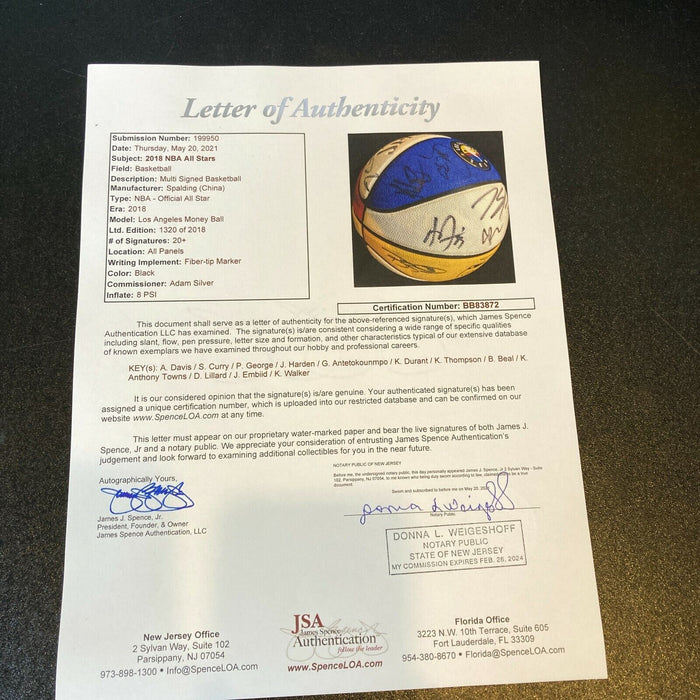 Letter of Authenticity
Submission Number: 199950
Date: Thursday, May 20, 2021
Subject: 2018 NBA All Stars
Field: Basketball
Description: Multi Signed Basketball
Manufacturer: Spalding (China)
Type: NBA - Official All Star
Era: 2018
Model: Los Angeles Money Ball
Ltd. Edition: 1320 of 2018
# of Signatures: 20+
Location: All Panels
Writing Implement: Fiber-tip Marker
Color: Black
Commissioner: Adam Silver
Inflate: 8 PSI
Certification Number: BB83872
This document shall serve as a letter of authenticity for the above-referenced signature(s), which James Spence
Authentication LLC has examined. The signature(s) is/are consistent considering a wide range of specific qualities
including slant, flow, pen pressure, letter size and formation, and other characteristics typical of our extensive database
of known exemplars we have examined throughout our hobby and professional careers.
KEY(s): A. Davis / S. Curry / P. George / J. Harden / G. Antetokounmpo / K. Durant / K. Thompson / B. Beal / K.
Anthony Towns / D. Lillard / J. Embiid / K. Walker
It is our considered opinion that the signature(s) is/are genuine. Your authenticated signature(s) has been
assigned a unique certification number, which is uploaded into our restricted database and can be confirmed on our
website www.SpenceLOA.com at any time.
This letter must appear on our proprietary water-marked paper and bear the live signatures of both James J.
Spence, Jr and a notary public. We appreciate your consideration of entrusting James Spence Authentication's
judgement and look forward to examining additional collectibles for you in the near future.
NOTARY PUBLIC OF NEW JERSEY
Before me, the undersigned notary public, this day personally appeared James J. Spence, Jr 2 Sylvan Way - Suite
102, Parsippany, NJ 07054, to me known who being duly sworn according to law, claimed to be a true
document.
Sworn and subscribed to before me on May 20, 2021
Autographically Yours,
James J. Spence, Jr.
President, Founder, & Owner
James Spence Authentication, LLC
Donna L Weigeshoff
Notary Public
DONNA L. WEIGESHOFF
NOTARY PUBLIC
STATE OF NEW JERSEY
MY COMMISSION EXPIRES FEB. 25, 2024
New Jersey Office
2 Sylvan Way, Suite 102
Parsippany, NJ 07054
973-898-1300 * Info@SpenceLOA.com
JSA
James Spence
Authentication
follow the leader
www.SpenceLOA.com
Florida Office
3223 N.W. 10th Terrace, Suite 605
Fort Lauderdale, FL 33309
954-380-8670 * Florida@SpenceLOA.com